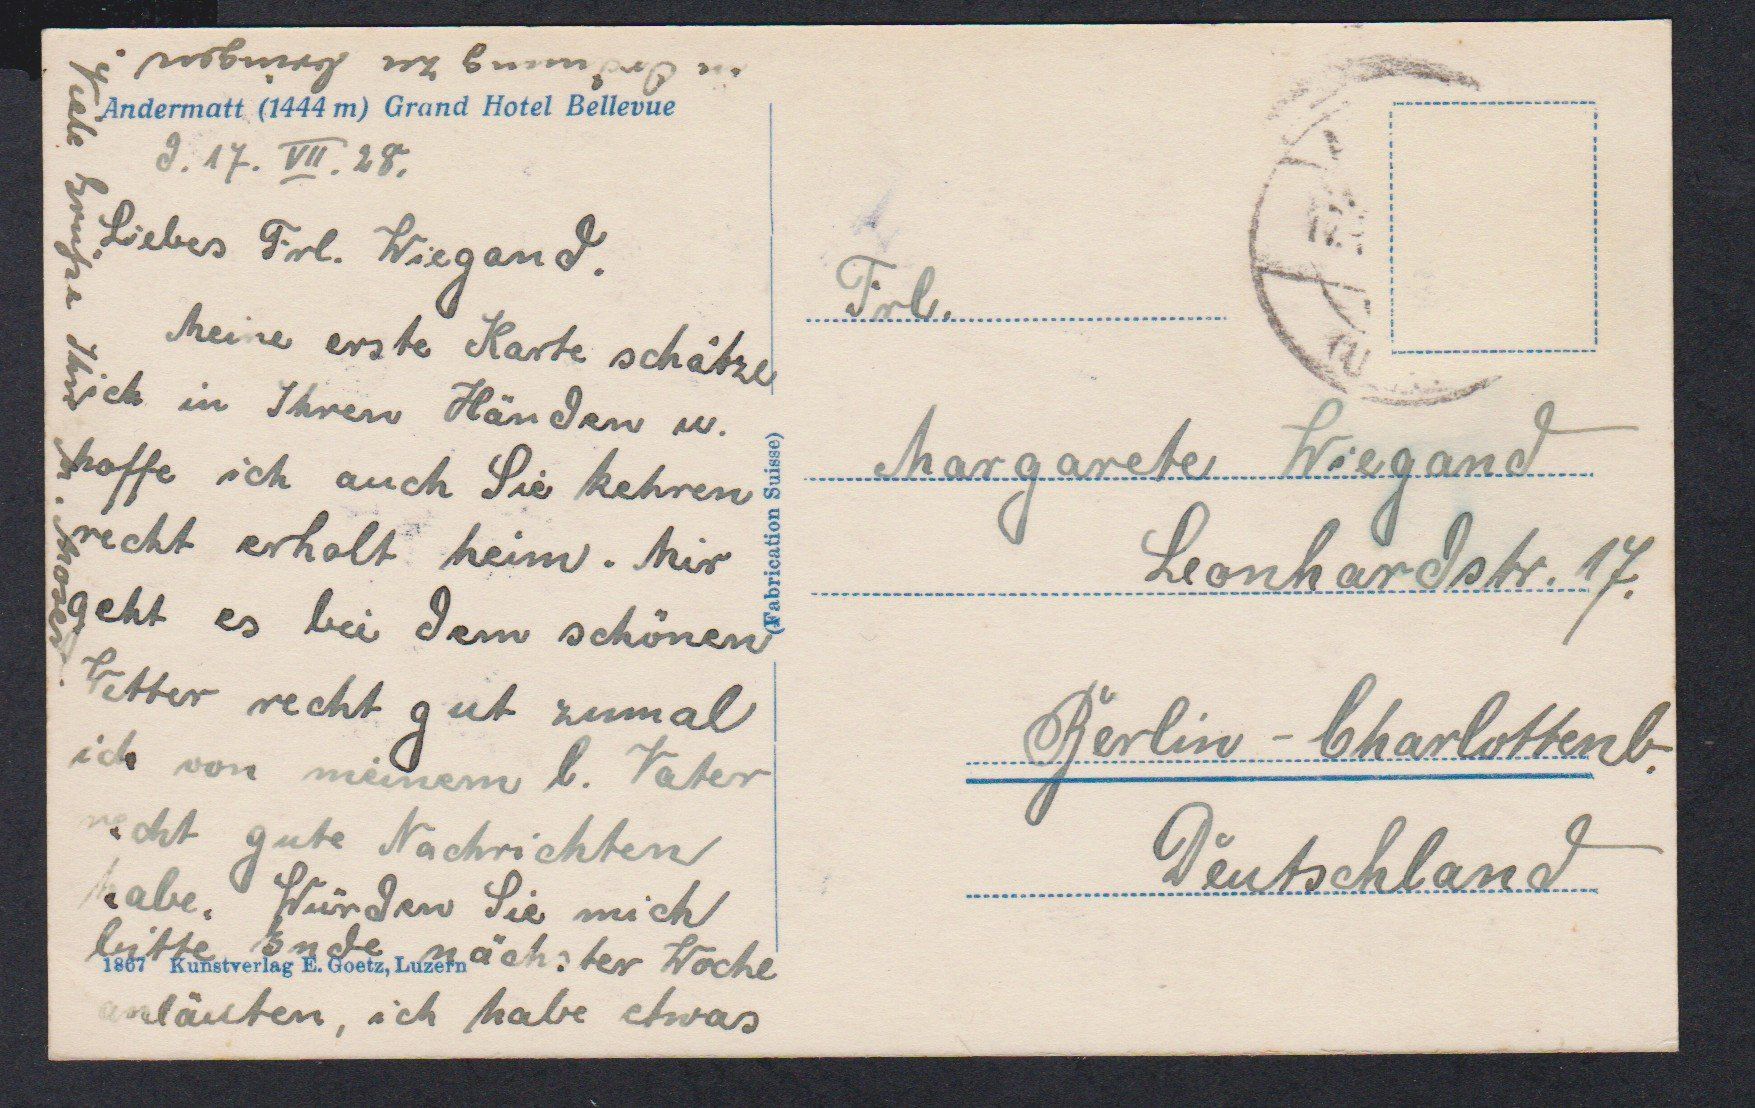 Andermatt (1444 m) Grand Hotel Bellevue
d. 17. VII. 28.
Liebes Frl. Wiegand.
Meine erste Karte schätze
ich in Ihren Händen u.
hoffe ich auch Sie kehren
recht erholt heim. Mir
geht es bei dem schönen
Wetter recht gut zumal
ich von meinem l. Vater
recht gute Nachrichten
habe. Würden Sie mich
bitte Ende nächster Woche
anläuten, ich habe etwas
in Ordnung zu bringen.
Viele Grüße Ihr
1867 Kunstverlag E. Goetz, Luzern
(Fabrication Suisse)
Frl.
Margarete Wiegand
Leonhardstr. 17.
Berlin - Charlottenb.
Deutschland